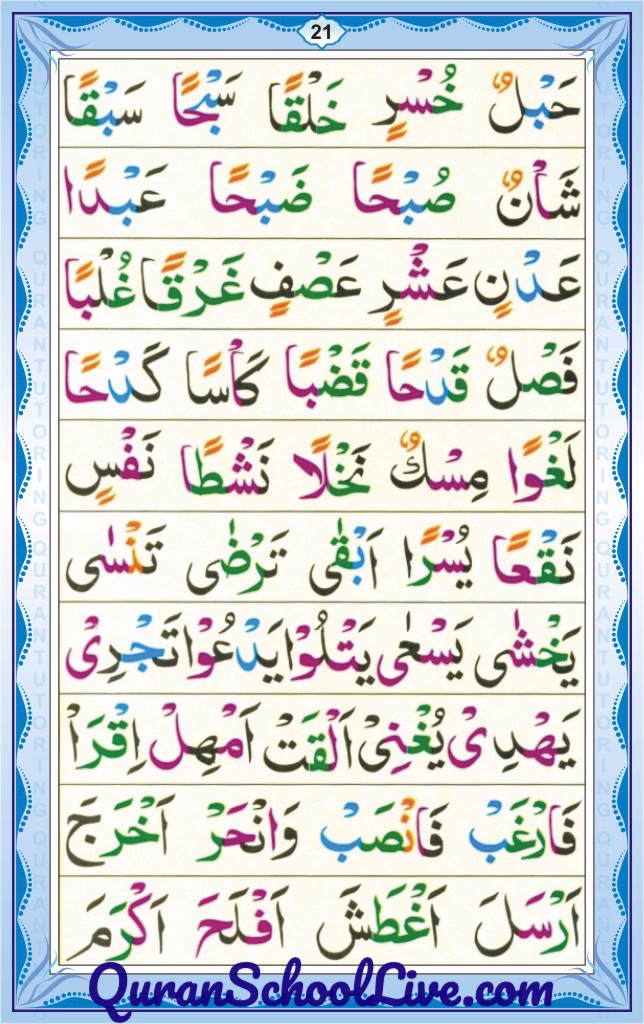 21
حَبْلٌ خُسْرٍ خَلْقًا سَبْحًا سَبْقًا
شَأْنٌ صُبْحًا ضَبْحًا عَبْدًا
عَدْنٍ عَشْرٍ عَصْفٍ غَرْقًا غُلْبًا
فَصْلٌ قَدْحًا قَضْبًا كَأْسًا كَدْحًا
لَغْوًا مِسْكٌ نَخْلًا نَشْطًا نَفْسٍ
نَقْعًا يُسْرًا اَبْقٰى تَرْضٰى تَنْسٰى
يَخْشٰى يَسْعٰى يَتْلُوْا يَدْعُوْا تَجْرِىْ
يَهْدِىْ يُغْنِىْ اَلْقَتْ اَمْهِلْ اِقْرَاْ
فَارْغَبْ فَانْصَبْ وَانْحَرْ اَخْرَجَ
اَرْسَلَ اَغْطَشَ اَفْلَحَ اَكْرَمَ
QuranSchoolLive.com
QURAN TUTORING QURAN TUTORING
QURAN TUTORING QURAN TUTORING